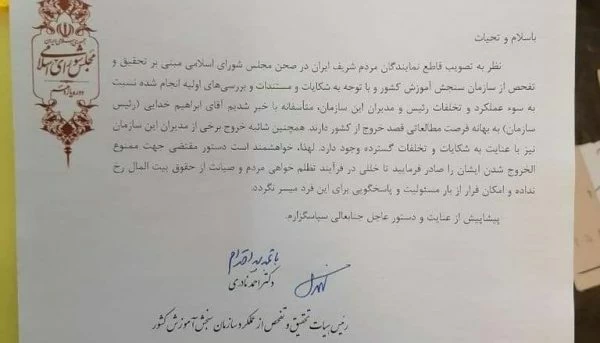 جمهوری اسلامی ایران
مجلس شورای اسلامی
دوره یازدهم
باسلام و تحیات
نظر به تصویب قاطع نمایندگان مردم شریف ایران در صحن مجلس شورای اسلامی مبنی بر تحقیق و
تفحص از سازمان سنجش آموزش کشور و با توجه به شکایات و مستندات و بررسی‌های اولیه انجام شده نسبت
به سوء عملکرد و تخلفات رئیس و مدیران این سازمان، متأسفانه با خبر شدیم آقای ابراهیم خدایی (رئیس
سازمان) به بهانه فرصت مطالعاتی قصد خروج از کشور دارند. همچنین شائبه خروج برخی از مدیران این سازمان
نیز با عنایت به شکایات و تخلفات گسترده وجود دارد. لهذا، خواهشمند است دستور مقتضی جهت ممنوع
الخروج شدن ایشان را صادر فرمایید تا خللی در فرآیند تظلم خواهی مردم و صیانت از حقوق بیت المال رخ
نداده و امکان فرار از بار مسئولیت و پاسخگویی برای این فرد میسر نگردد.
پیشاپیش از عنایت و دستور عاجل جنابعالی سپاسگزارم.
با تقدیم احترام
دکتر احمد نادری
رئیس هیات تحقیق و تفحص از عملکرد سازمان سنجش آموزش کشور